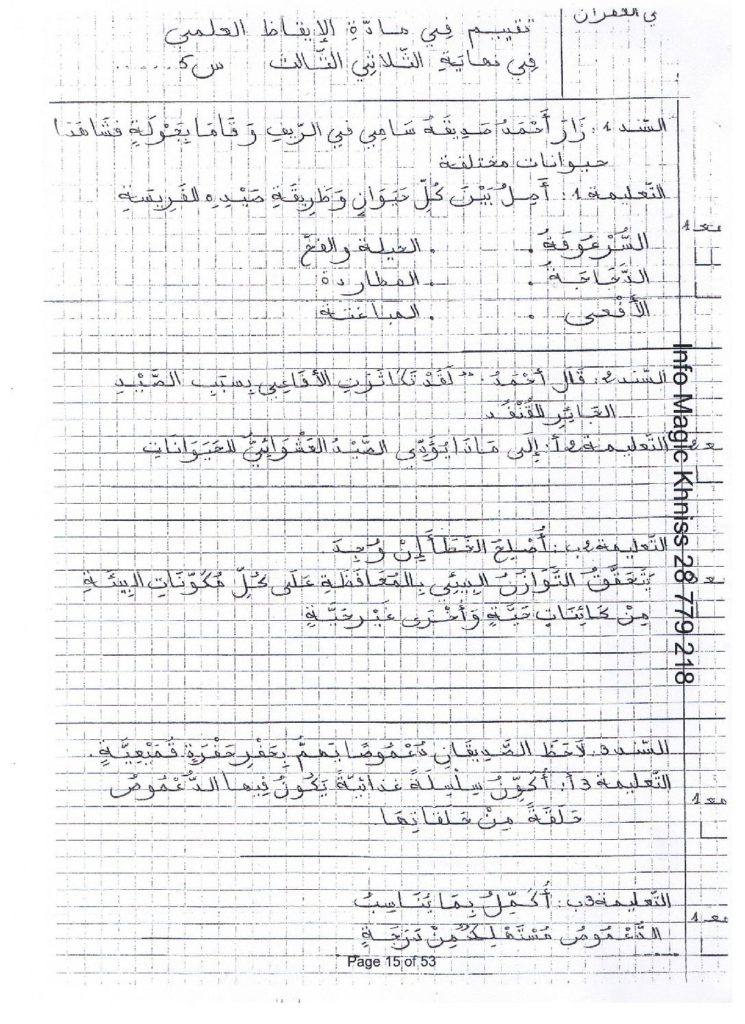 ي القفران
تقييم في مادّة الإيقاظ العلمي
في نهاية الثّلاثي الثّالث س5......
السّند 1: زَارَ أَحْمَدُ صَدِيقَهُ سَامِي في الرّيفِ وَ قَامَا بِجَوْلَةٍ فشَاهَدَا
حيوانات مختلفة
التّعليمة 1: أَصِلُ بَيْنَ كُلِّ حَيَوَانٍ وَطَرِيقَةِ صَيْدِهِ لِلفَرِيسَةِ
مع 1
السُّرْعُوفَةُ . . الحيلة والفخّ
الدَّجَاجَةُ . . المطاردة
الأَفْعَى . . المباغتة
السّند 2: قَالَ أَحْمَدُ: "لَقَدْ تَكَاثَرَتِ الأَفَاعِي بِسَبَبِ الصَّيْدِ
الجَائِرِ لِلْقُنْفُذِ
التّعليمة 2أ: إلى مَاذَا يُؤَدِّي الصَّيْدُ العَشْوَائِيُّ للحَيَوَانَاتِ
التّعليمة 2ب: أُصْلِحُ الخَطَأَ إِنْ وُجِدَ
يَتَحَقَّقُ التَّوَازُنُ البِيئِي بِالمُحَافَظَةِ عَلَى كُلِّ مُكَوِّنَاتِ البِيئَةِ
مِنْ كَائِنَاتٍ حَيَّةٍ وَأُخْرَى غَيْرِ حَيَّةٍ
السّند 3: لَاحَظَ الصَّدِيقَانِ دُعْمُوصًا يَهمُّ بِحَفْرِ حُفْرَةٍ قُمْعِيَّةٍ.
التّعليمة 3أ: أُكَوِّنُ سِلْسِلَةً غذائيّةً يَكُونُ فِيهَا الدُّعْمُوصُ
مع 1
حَلَقَةً مِنْ حَلَقَاتِهَا
التّعليمة 3ب: أُكَمِّلُ بِمَا يُنَاسِبُ
مع 1
الدُّعْمُوصُ مُسْتَهْلِكٌ مِنْ دَرَجَةِ
Page 15 of 53
Info Magic Khniss 28 779 218